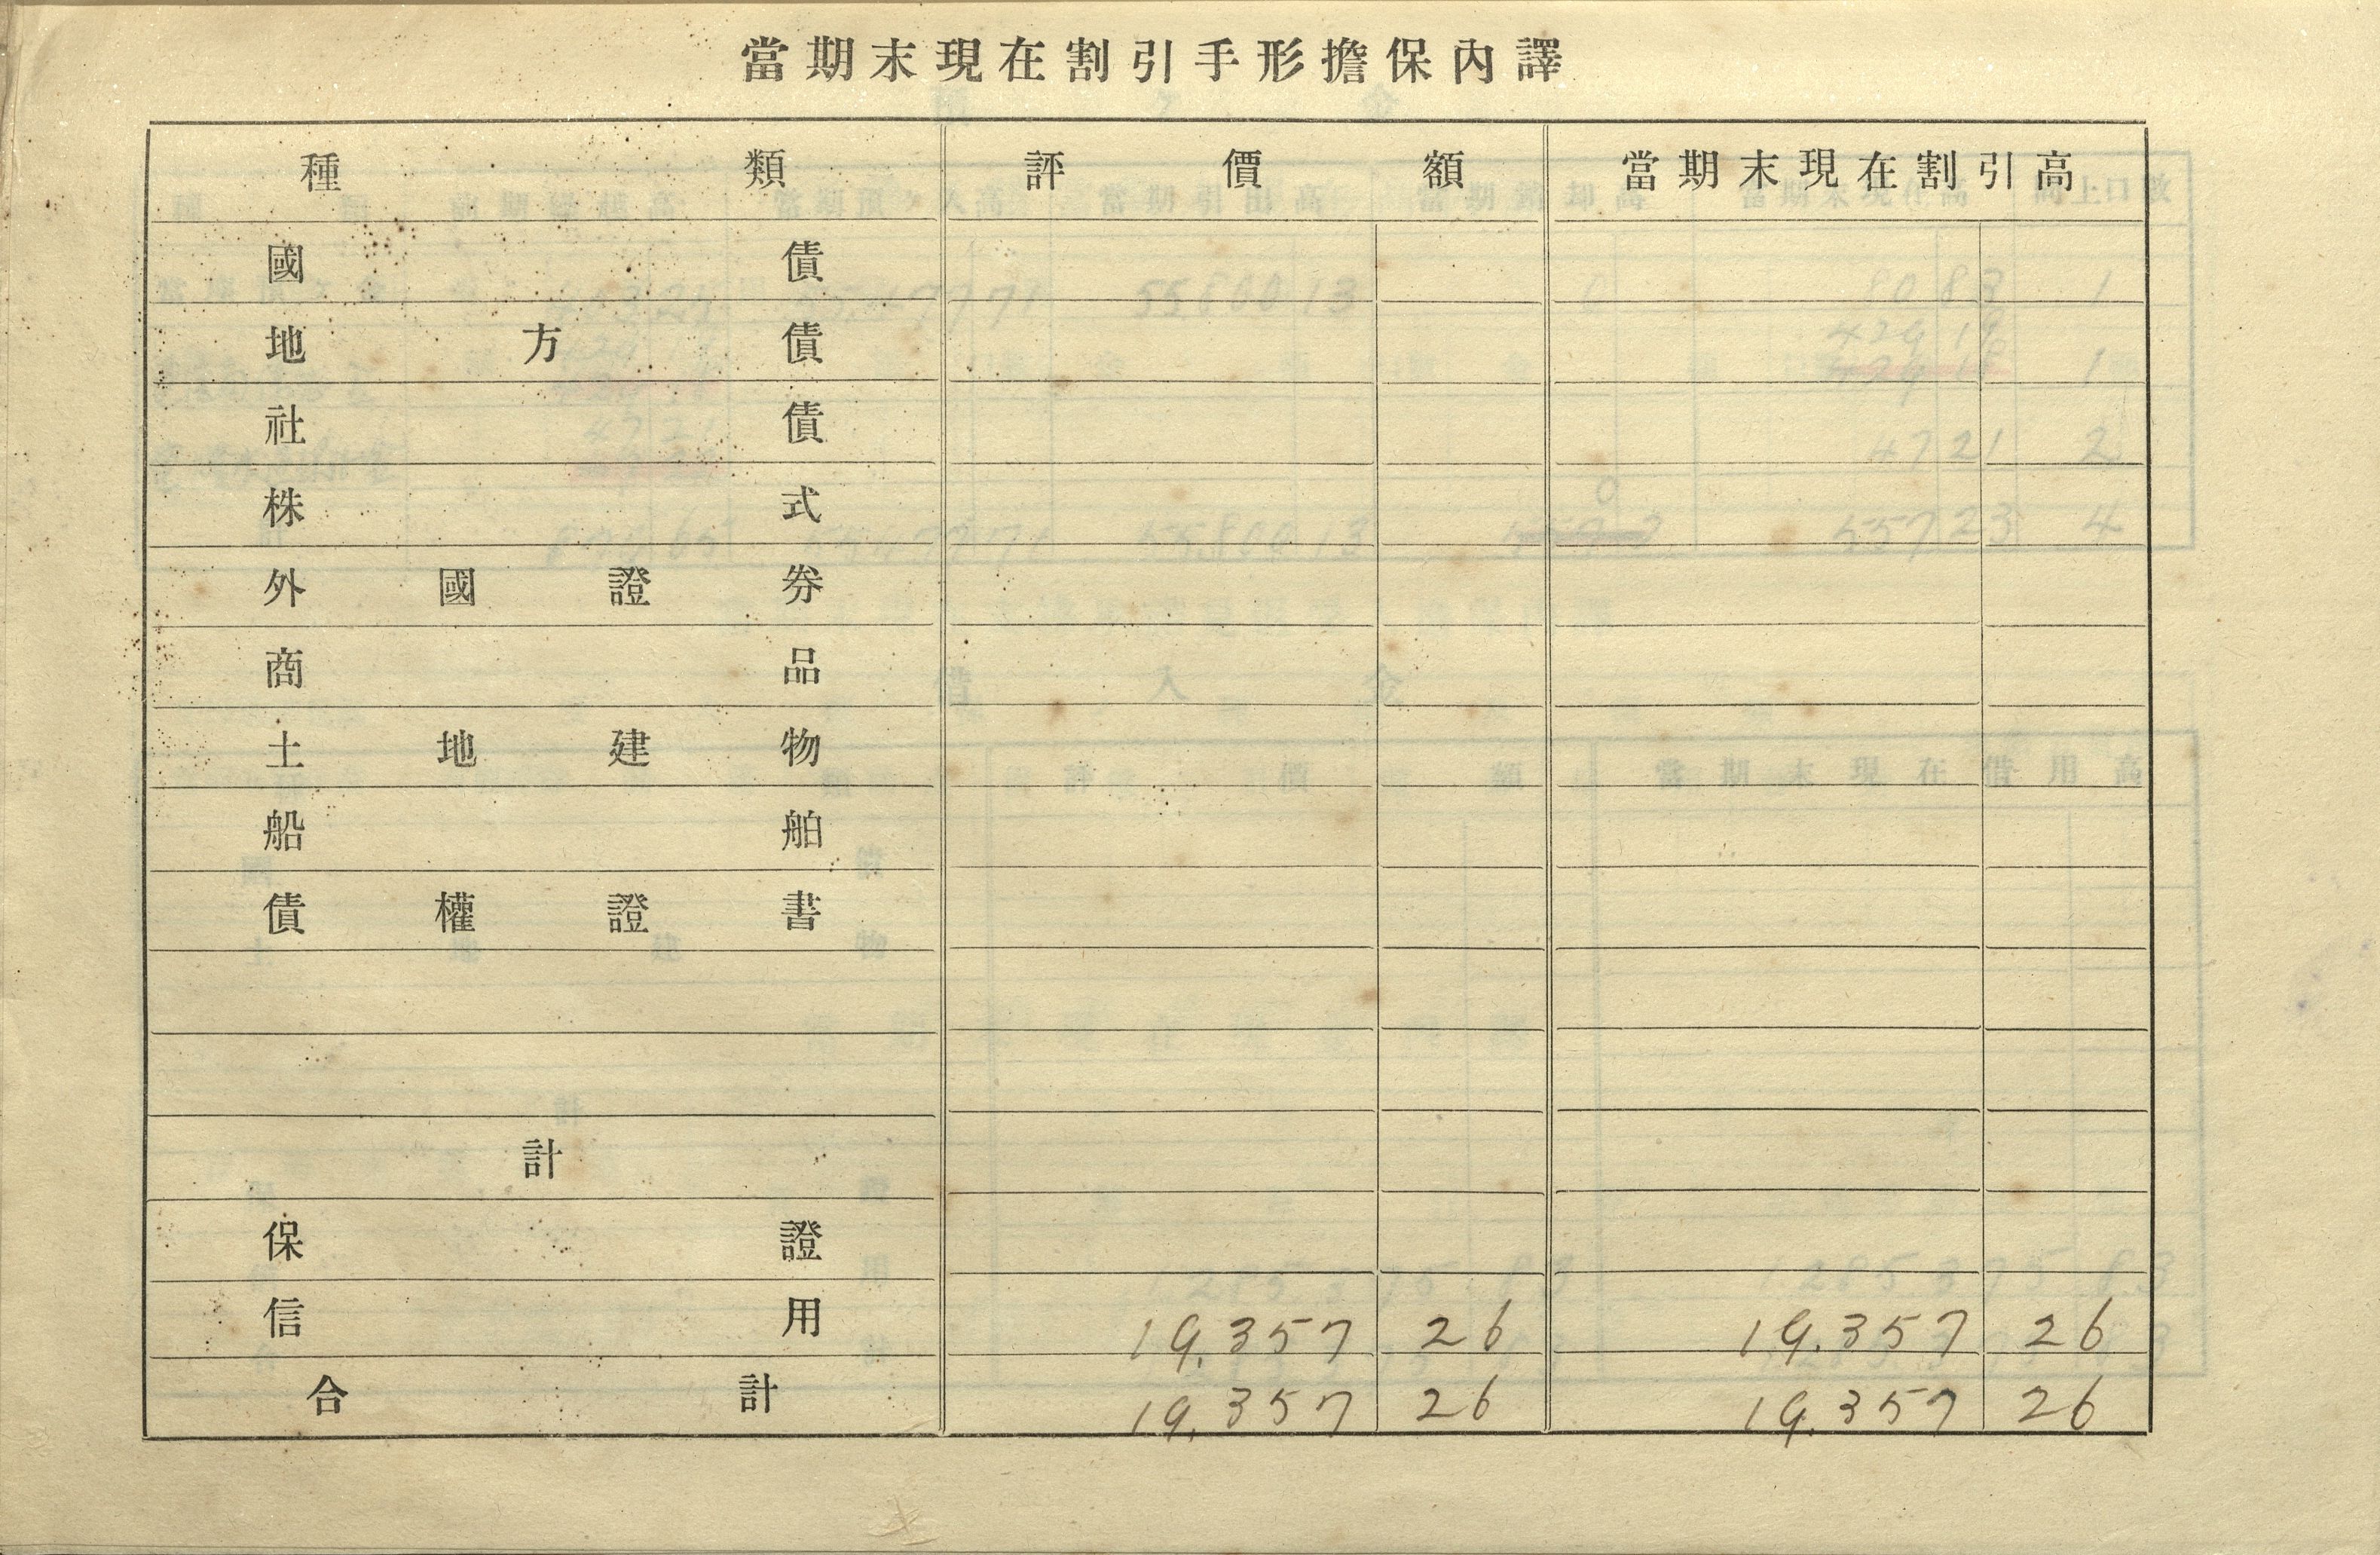 當期末現在割引手形擔保內譯
種類 評價額 當期末現在割引高
國債
地方債
社債
株式
外國證券
商品
土地建物
船舶
債權證書
計
保證
信用 19,357 26 19,357 26
合計 19,357 26 19,357 26